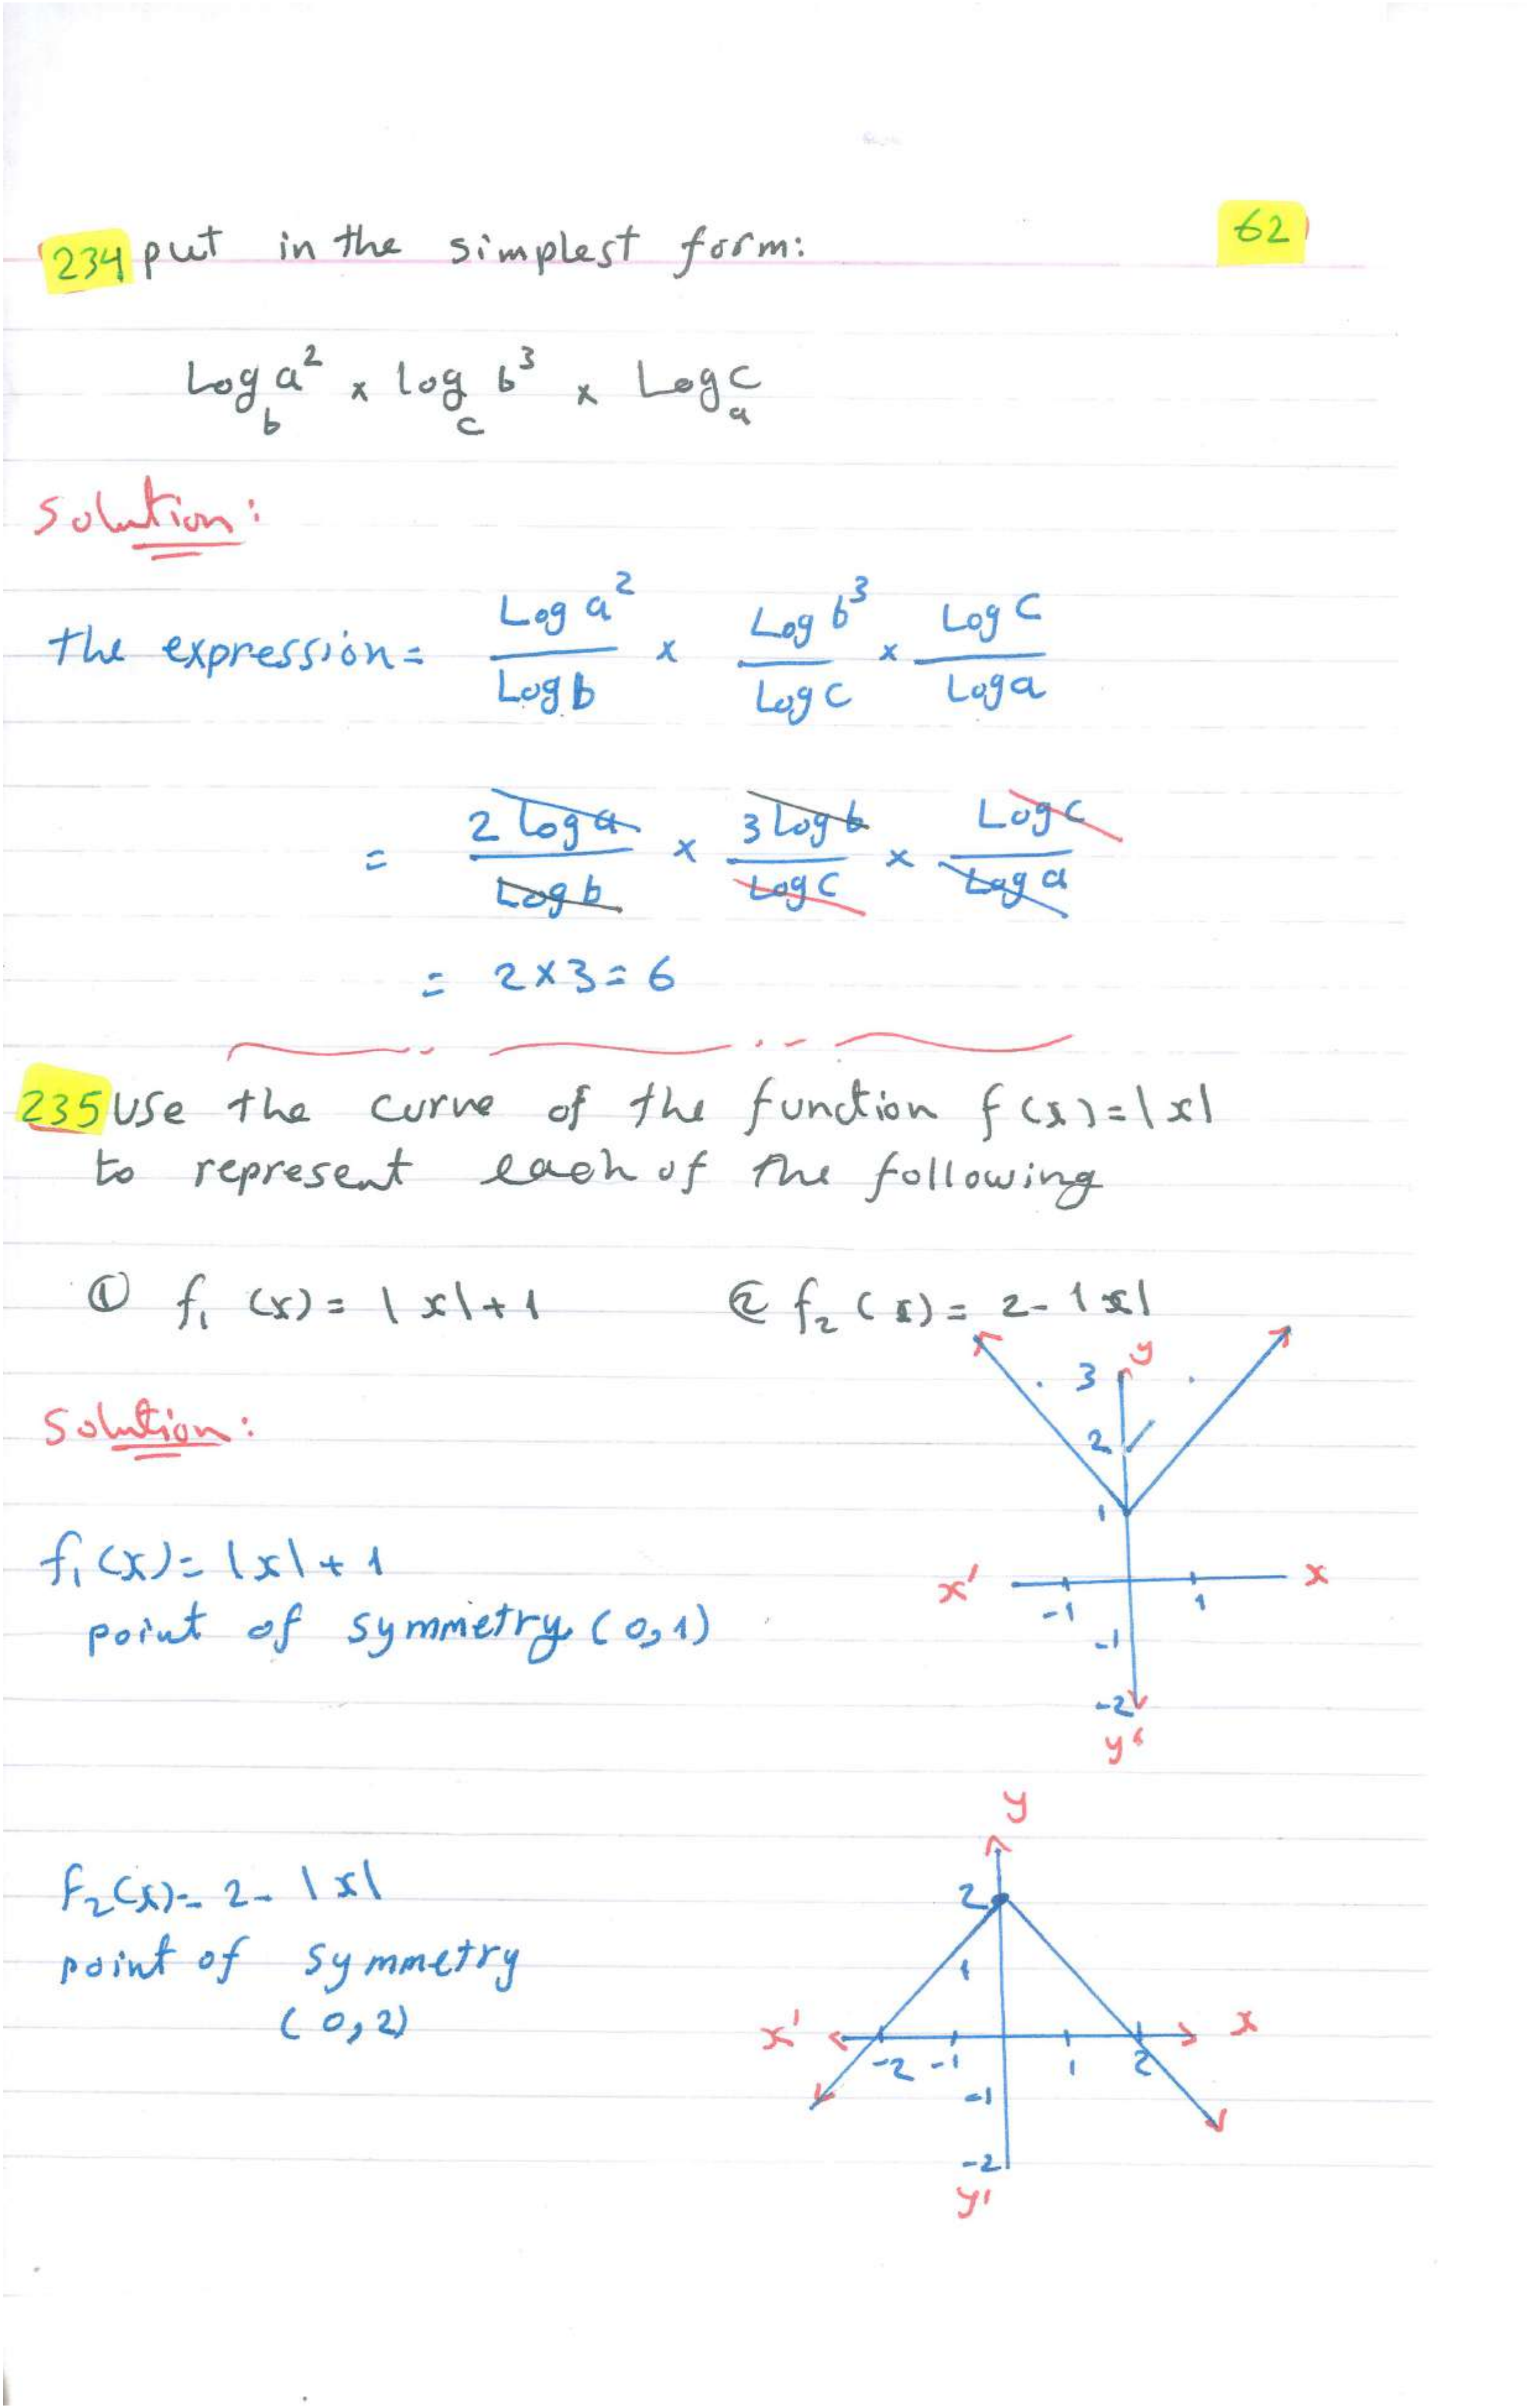 62
234 put in the simplest form:
Log_b a² × log_c b³ × Log_a c
Solution:
the expression = Log a² / Log b × Log b³ / Log c × Log c / Log a
= 2 Log a / Log b × 3 Log b / Log c × Log c / Log a
= 2×3 = 6
235 Use the curve of the function f(x)=|x|
to represent each of the following
① f₁ (x) = |x|+1 ② f₂ (x) = 2-|x|
Solution:
y
3
2
1
f₁(x) = |x| + 1
x' x
-1 1
point of symmetry (0,1)
-1
-2
y'
y
f₂(x) = 2-|x|
2
point of symmetry
1
(0,2)
x' x
-2 -1 1 2
-1
-2
y'